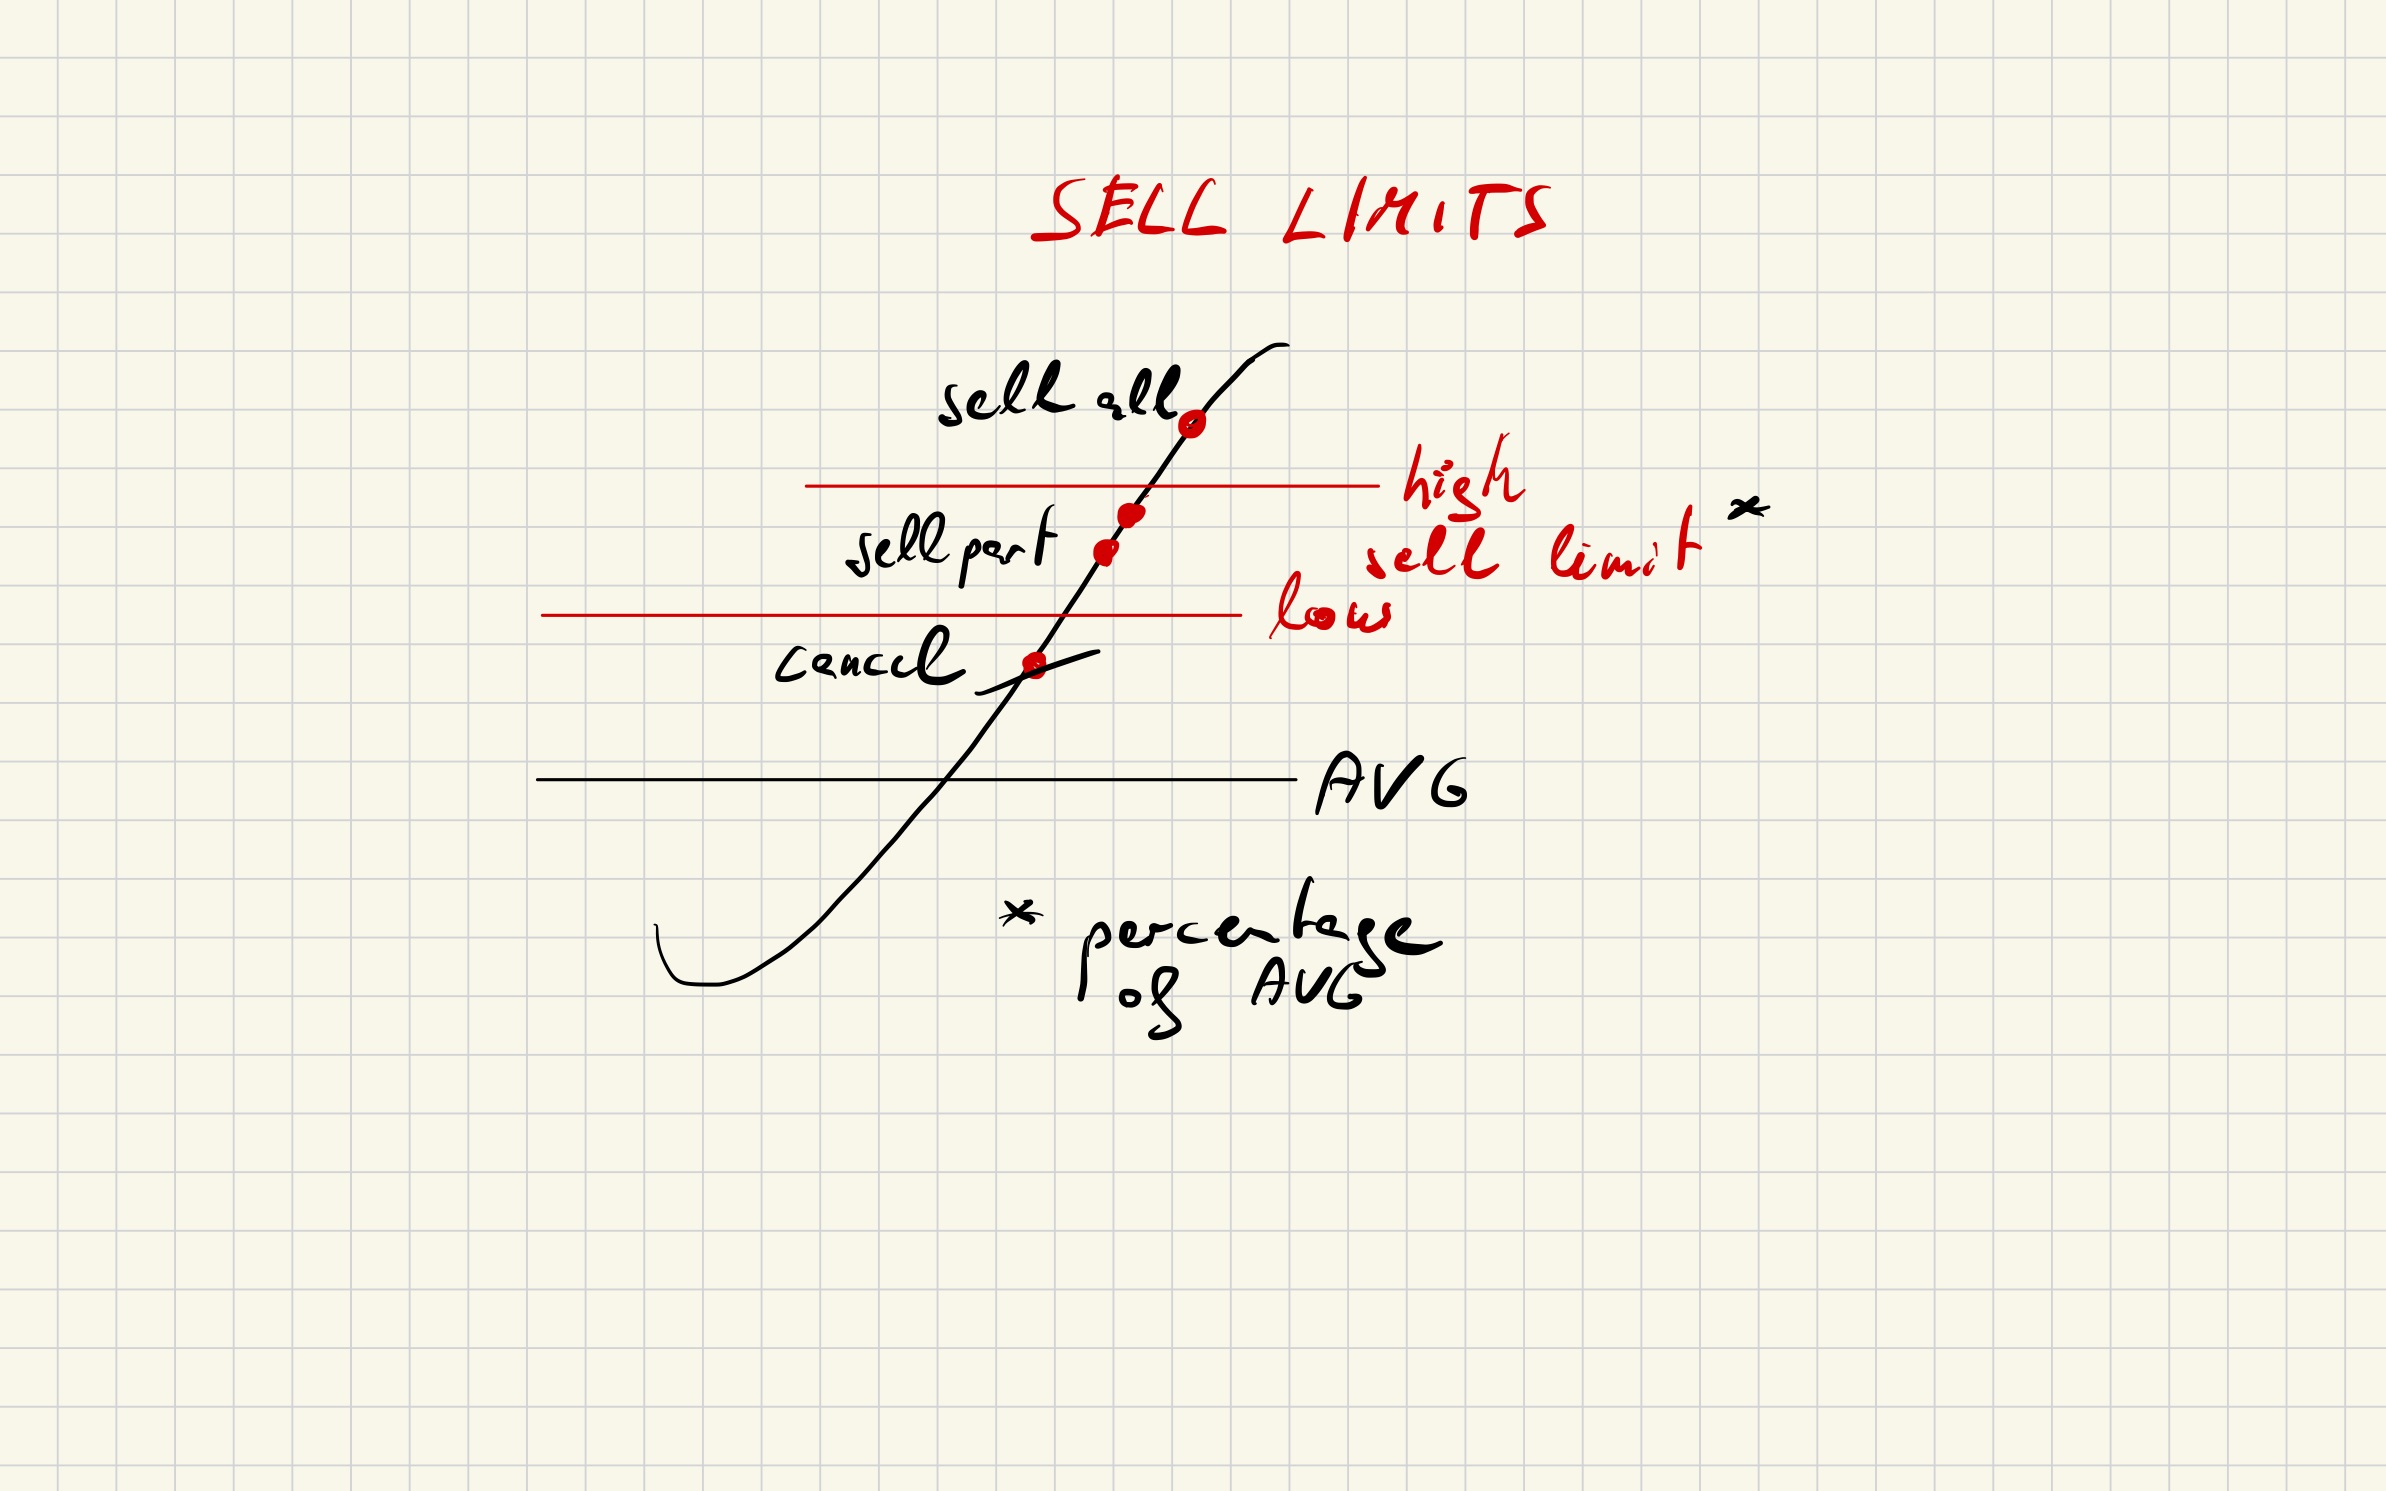 SELL LIMITS
sell all
high
sell part
sell limit *
low
cancel
AVG
* percentage
of AVG